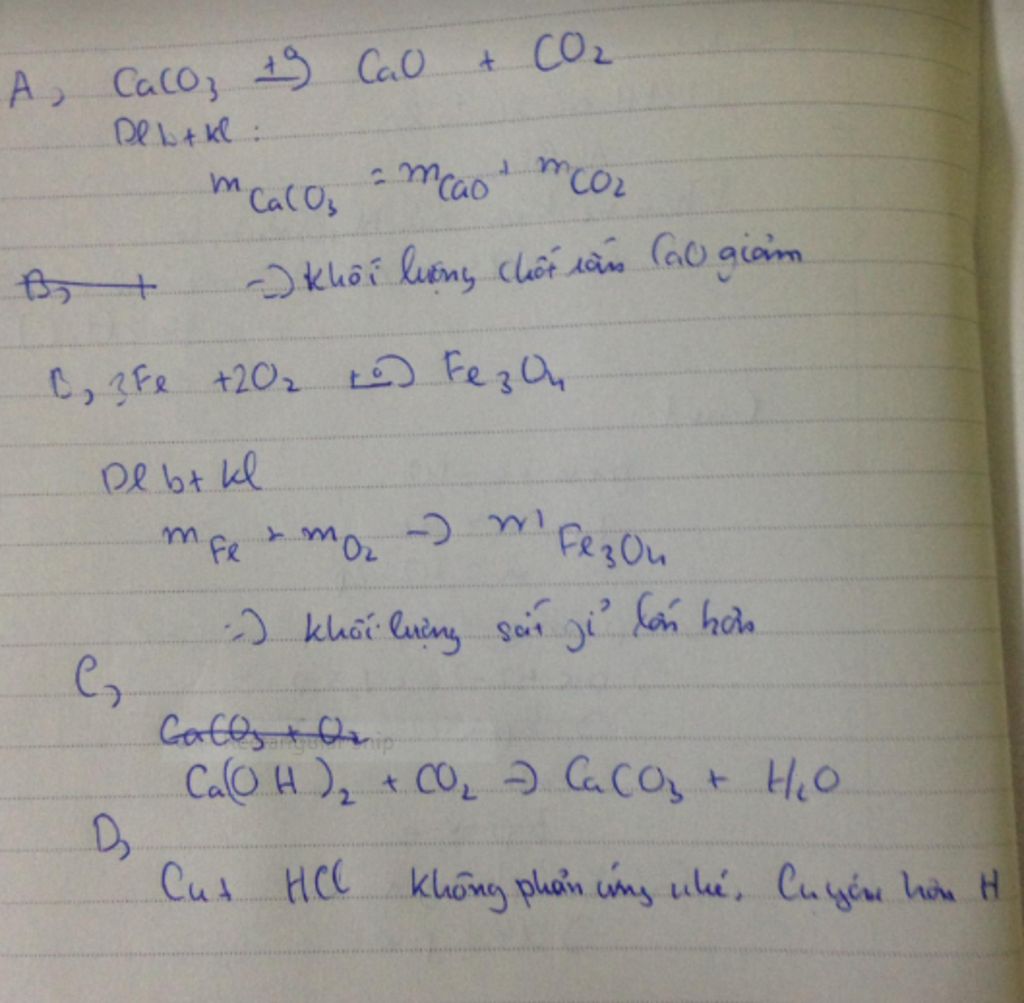 A, CaCO3 t°→ CaO + CO2
Dl bt kl :
m CaCO3 = m CaO + m CO2
B,
=> Khối lượng chất rắn CaO giảm
B, 3Fe + 2O2 t°→ Fe3O4
Dl bt kl
m Fe + m O2 → m Fe3O4
=> khối lượng sắt gỉ lớn hơn
C,
CaCO3 + O2
Ca(OH)2 + CO2 → CaCO3 + H2O
D,
Cu + HCl không phản ứng nhé. Cu yếu hơn H